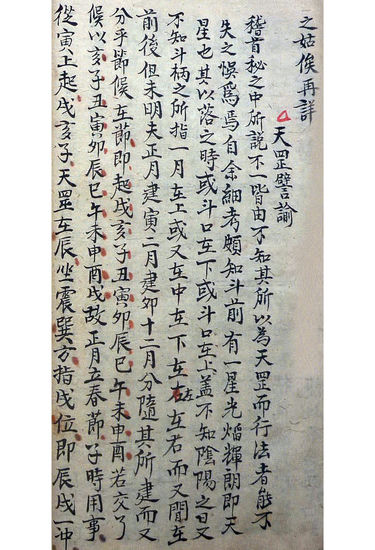 之姑俟再詳
天罡譬諭
稽首秘之中所說不一皆由不知其所以為天罡而行法者能不
失之悞爲焉自余細考頗知斗前有一星光熖輝朗即天
星也其以落之時或斗口在下或斗口在上盖不知陰陽之日又
不知斗柄之所指一月在上或又在中在下在左在右而又間在
前後但未明夫正月建寅二月建卯十二月分隨其所建而又
分乎節候在節即起戌亥子丑寅卯辰巳午未申酉若交了
候以亥子丑寅卯辰巳午未申酉戌故正月立春節子時用事
從寅上起戌亥子天罡在辰坐震巽方指戌位即辰戌一冲